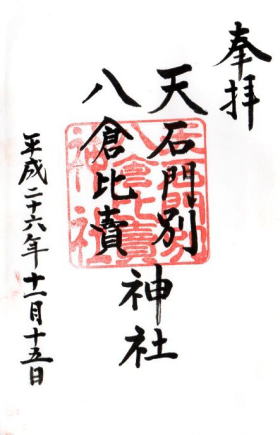 奉拝
天石門別
八倉比賣
神社
平成二十六年十一月十五日